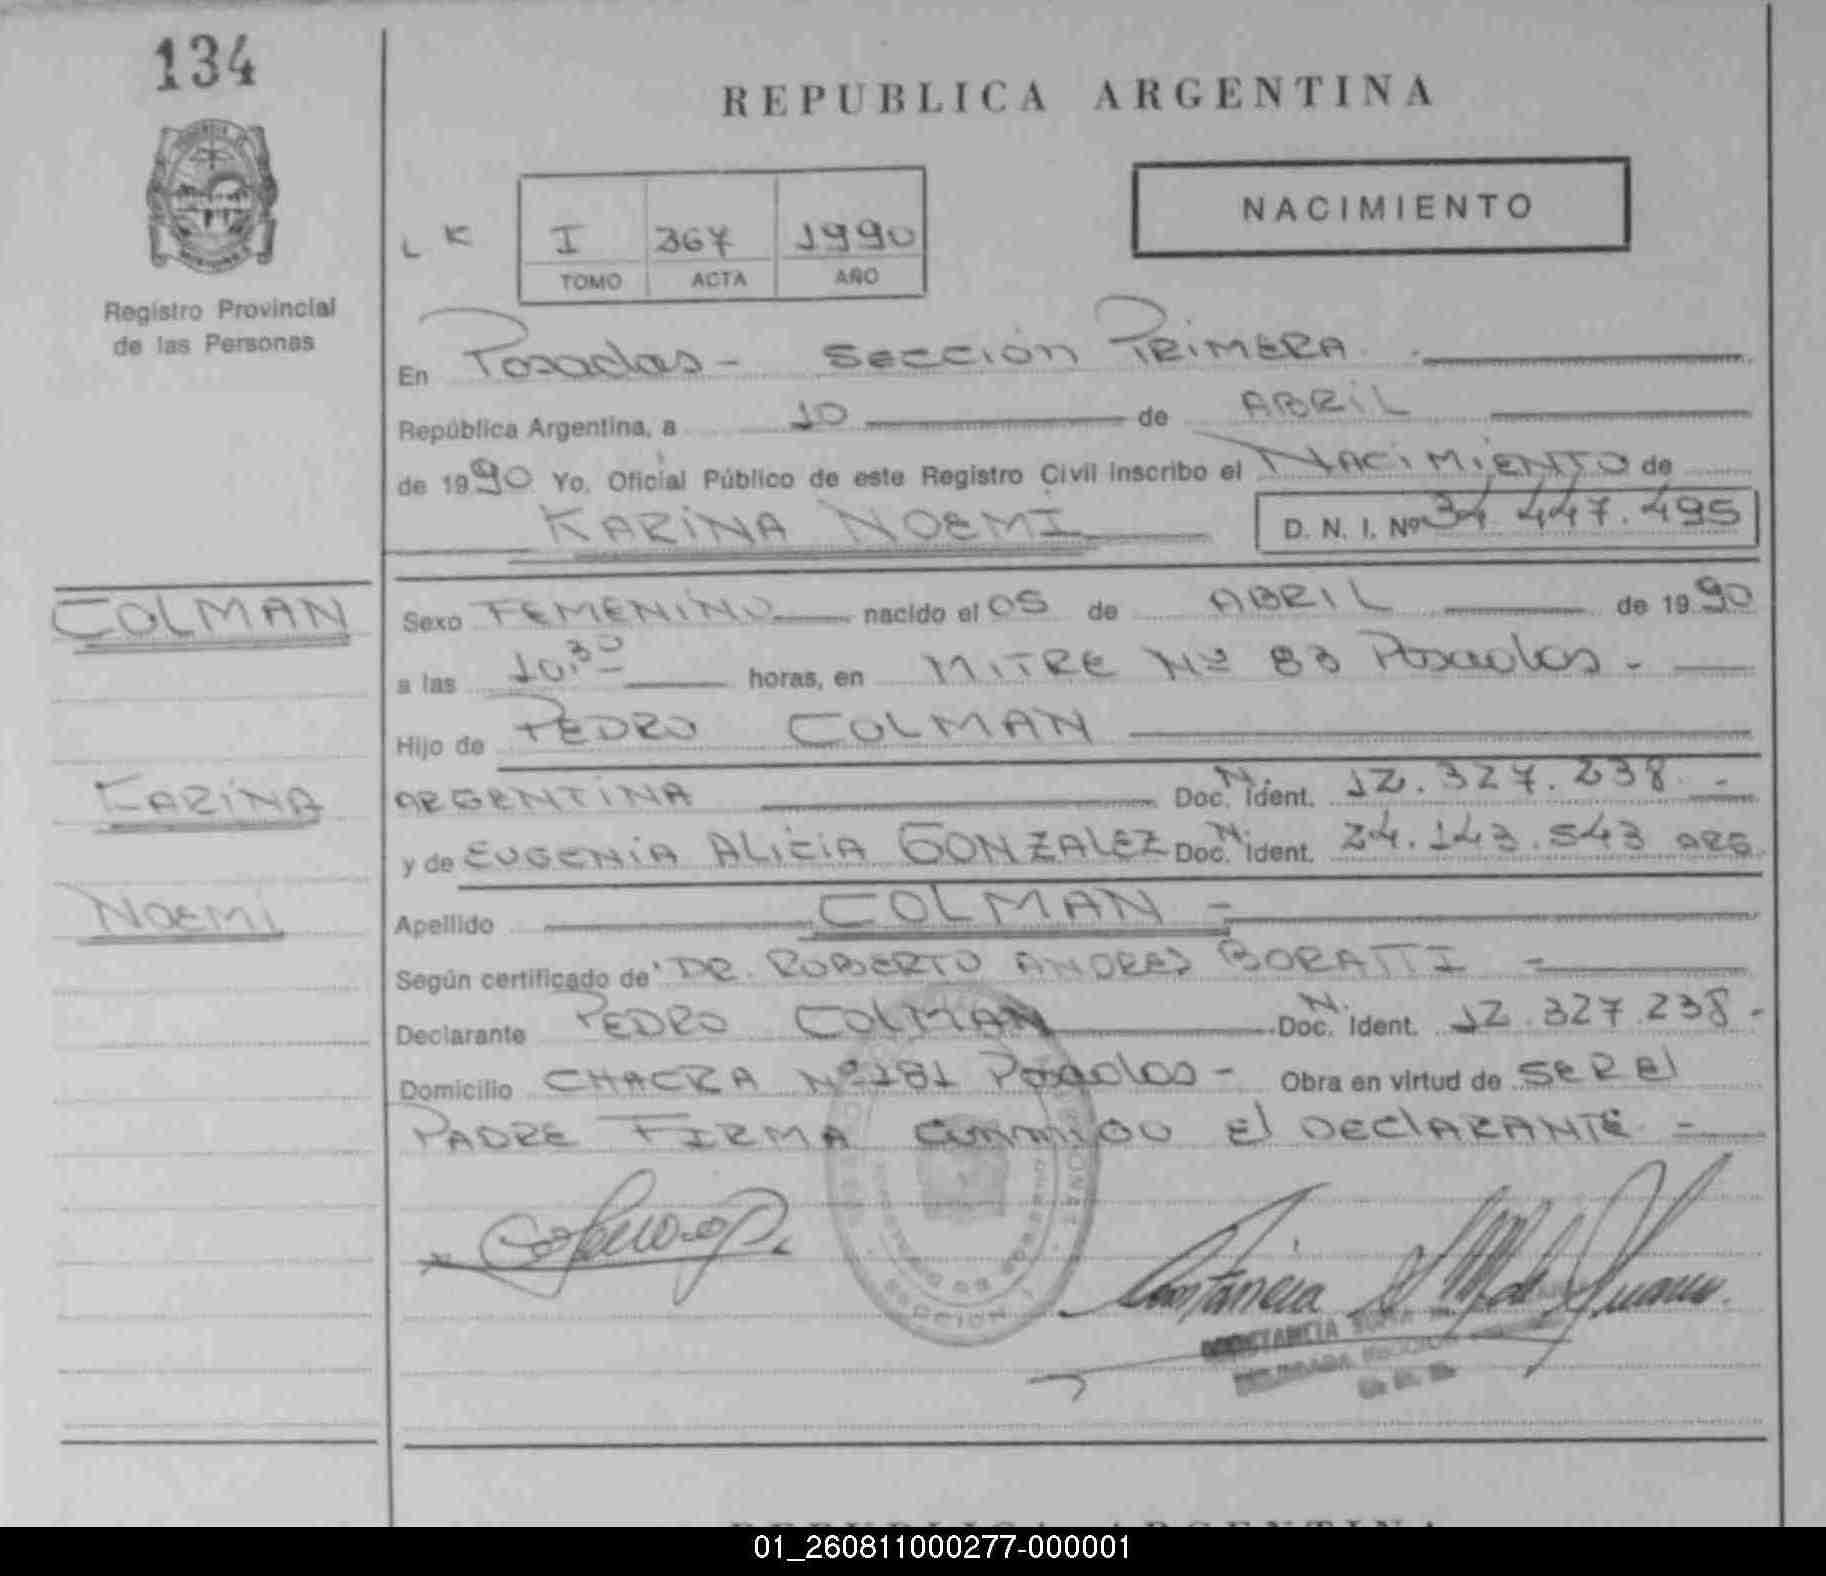 134
REPUBLICA ARGENTINA
NACIMIENTO
L K
I 367 1990
TOMO ACTA AÑO
Registro Provincial
de las Personas
En Posadas - Sección PRIMERA
República Argentina, a 10 de ABRIL
de 1990 Yo, Oficial Público de este Registro Civil inscribo el NACIMIENTO de
KARINA NOEMI D. N. I. Nº 34.447.495
COLMAN
Sexo FEMENINO nacido el 05 de ABRIL de 1990
a las 10.30 horas, en MITRE Nº 83 Posadas -
Hijo de PEDRO COLMAN
KARINA
ARGENTINA Doc. N. Ident. 12.327.238 -
y de EUGENIA ALICIA GONZALEZ Doc. N. Ident. 24.143.543 ARG.
NOEMI
Apellido COLMAN -
Según certificado de DR. ROBERTO ANDRES BORATTI -
Declarante PEDRO COLMAN Doc. N. Ident. 12.327.238 -
Domicilio CHACRA Nº 181 Posadas - Obra en virtud de SER El
PADRE FIRMA conmigo El DEClARANTE -
SECCION 1
01_260811000277-000001